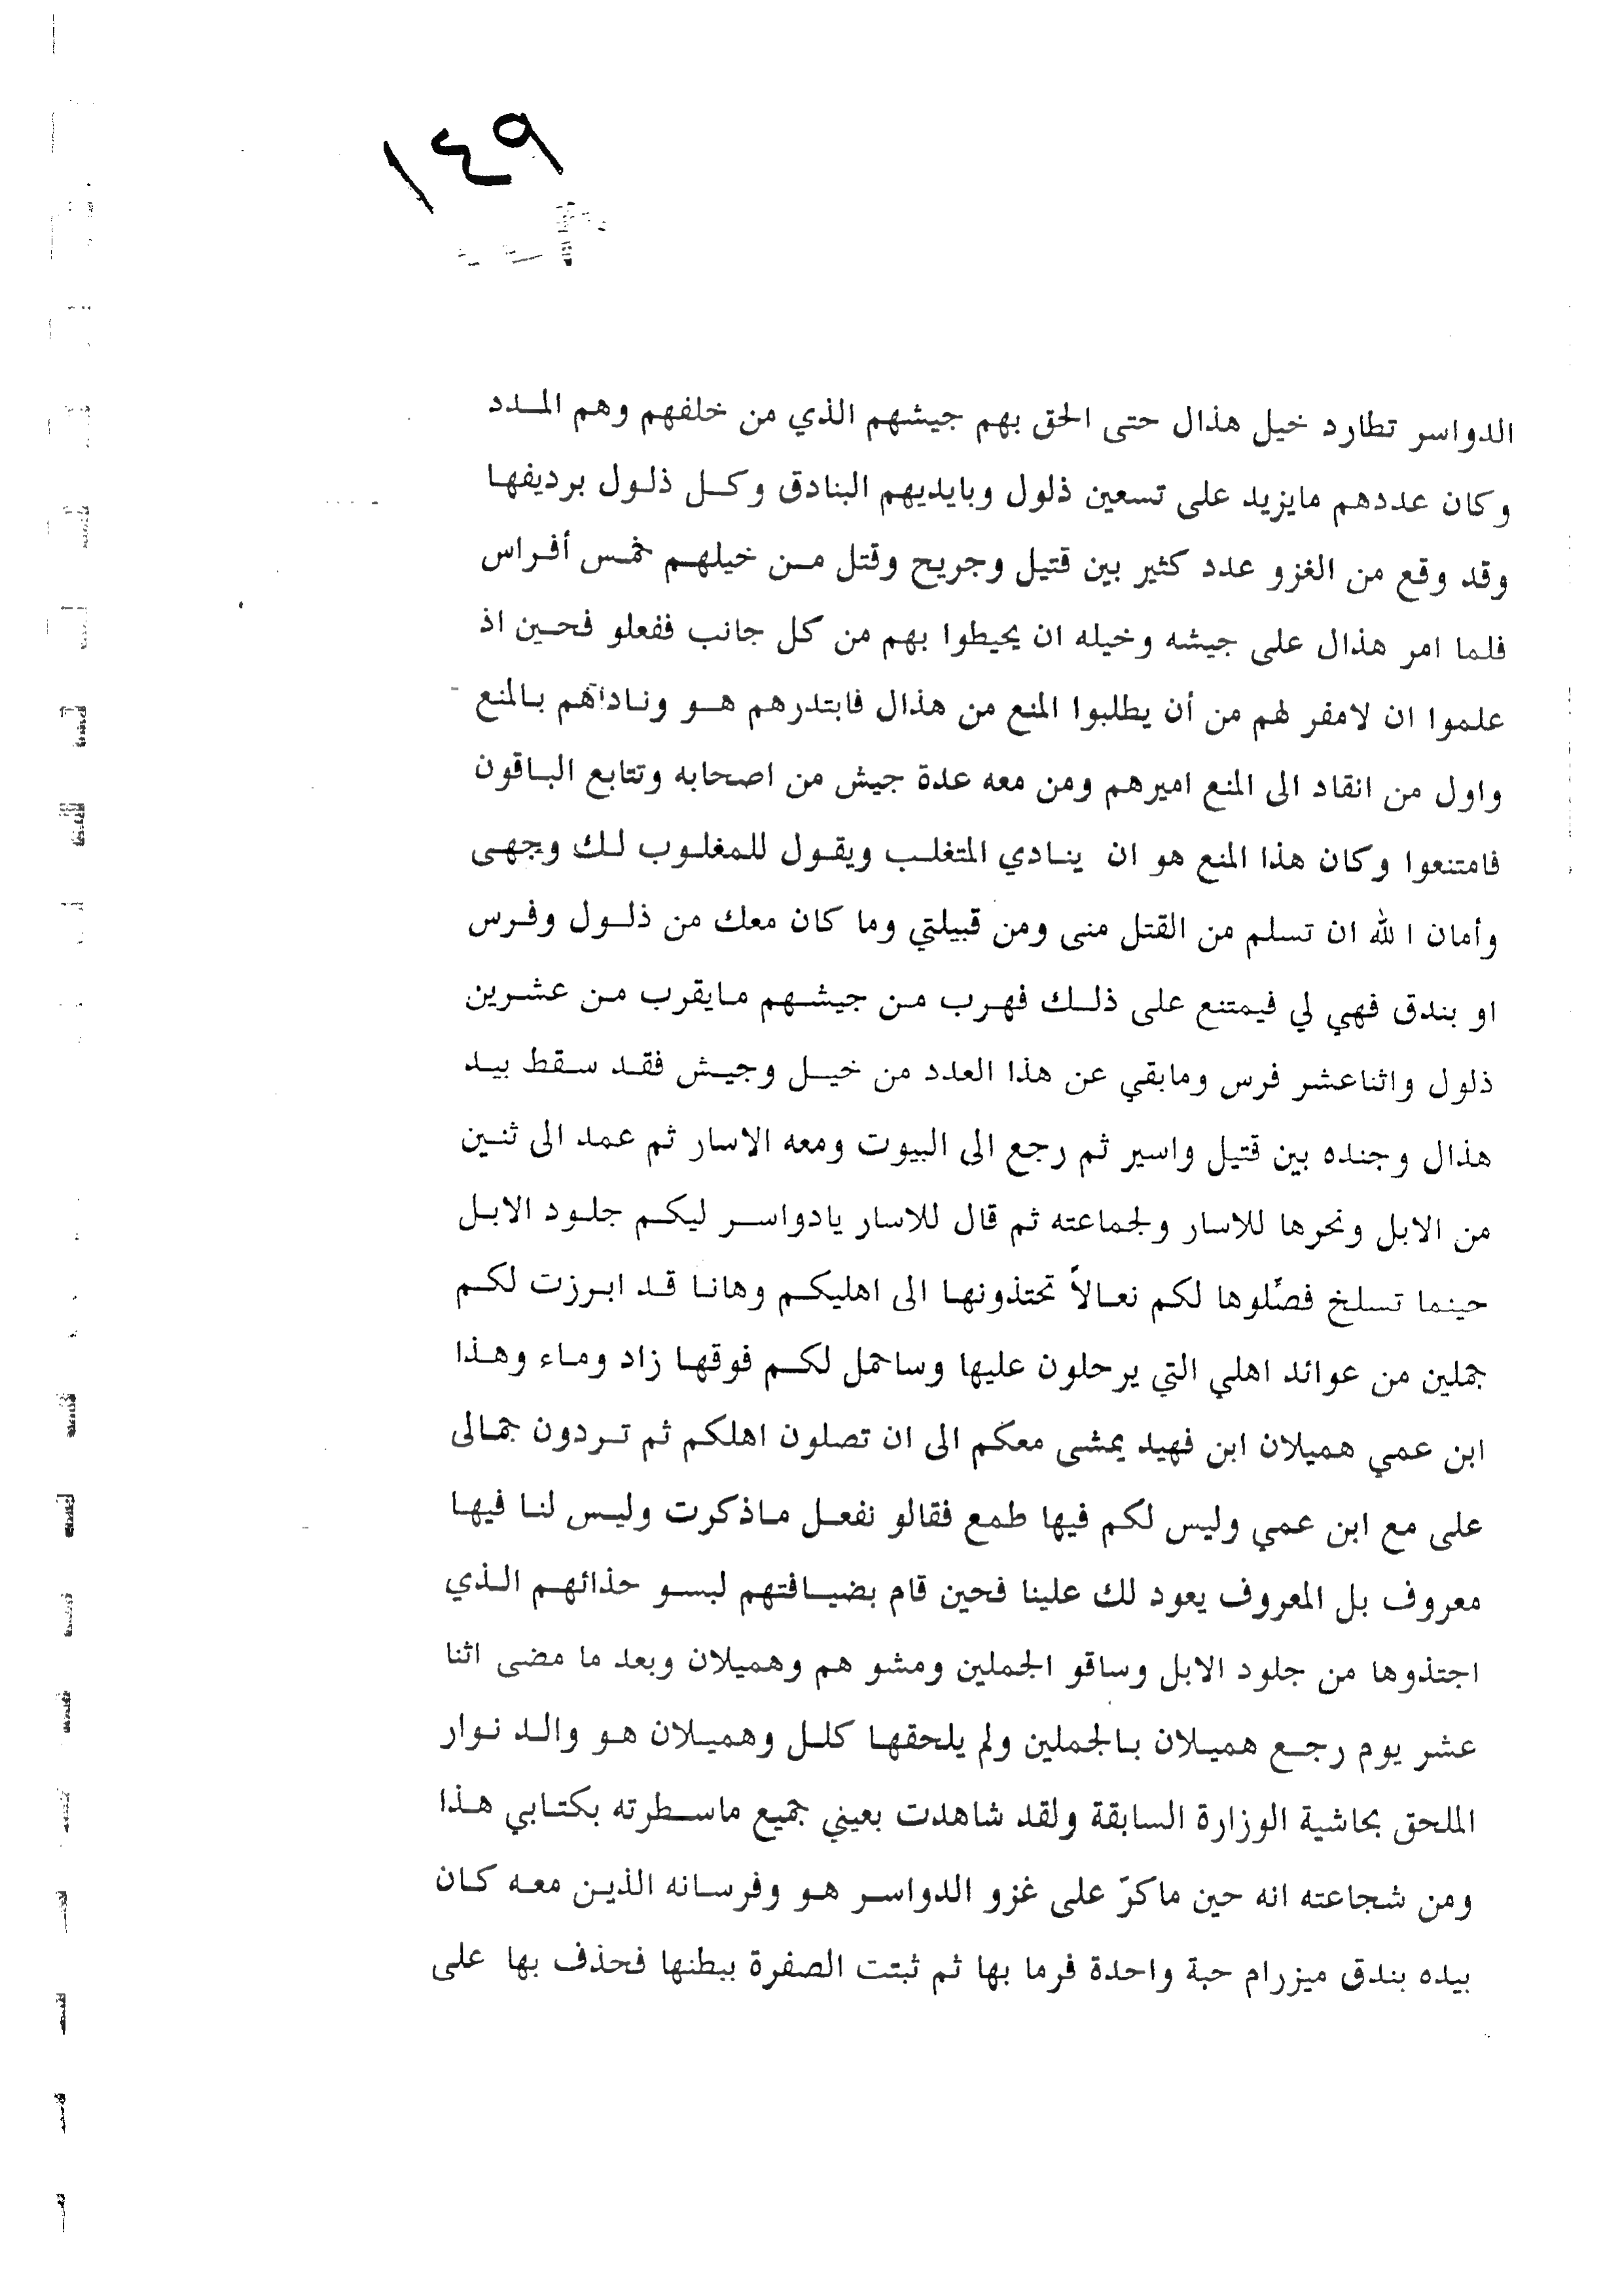 ١٤٩
الدواسر تطارد خيل هذال حتى الحق بهم جيشهم الذي من خلفهم وهم المدد
وكان عددهم مايزيد على تسعين ذلول وبايديهم البنادق وكل ذلول برديفها
وقد وقع من الغزو عدد كثير بين قتيل وجريح وقتل من خيلهم خمس أفراس
فلما امر هذال على جيشه وخيله ان يحيطوا بهم من كل جانب ففعلو فحين اذ
علموا ان لامفر لهم من أن يطلبوا المنع من هذال فابتدرهم هو وناداهم بالمنع
واول من انقاد الى المنع اميرهم ومن معه عدة جيش من اصحابه وتتابع الباقون
فامتنعوا وكان هذا المنع هو ان ينادي المتغلب ويقول للمغلوب لك وجهى
وأمان الله ان تسلم من القتل منى ومن قبيلتي وما كان معك من ذلول وفرس
او بندق فهي لي فيمتنع على ذلك فهرب من جيشهم مايقرب من عشرين
ذلول واثناعشر فرس ومابقي عن هذا العدد من خيل وجيش فقد سقط بيد
هذال وجنده بين قتيل واسير ثم رجع الى البيوت ومعه الاسار ثم عمد الى ثنين
من الابل ونحرها للاسار ولجماعته ثم قال للاسار يادواسر ليكم جلود الابل
حينما تسلخ فصّلوها لكم نعالاً تحتذونها الى اهليكم وهانا قد ابرزت لكم
جملين من عوائد اهلي التي يرحلون عليها وساحمل لكم فوقها زاد وماء وهذا
ابن عمي هميلان ابن فهيد يمشى معكم الى ان تصلون اهلكم ثم تردون جمالى
على مع ابن عمي وليس لكم فيها طمع فقالو نفعل ماذكرت وليس لنا فيها
معروف بل المعروف يعود لك علينا فحين قام بضيافتهم لبسو حذائهم الذي
اجتذوها من جلود الابل وساقو الجملين ومشو هم وهميلان وبعد ما مضى اثنا
عشر يوم رجع هميلان بالجملين ولم يلحقها كلل وهميلان هو والد نوار
الملحق بحاشية الوزارة السابقة ولقد شاهدت بعيني جميع ماسطرته بكتابي هذا
ومن شجاعته انه حين ماكرّ على غزو الدواسر هو وفرسانه الذين معه كان
بيده بندق ميزرام حبة واحدة فرما بها ثم ثبتت الصفرة ببطنها فحذف بها على